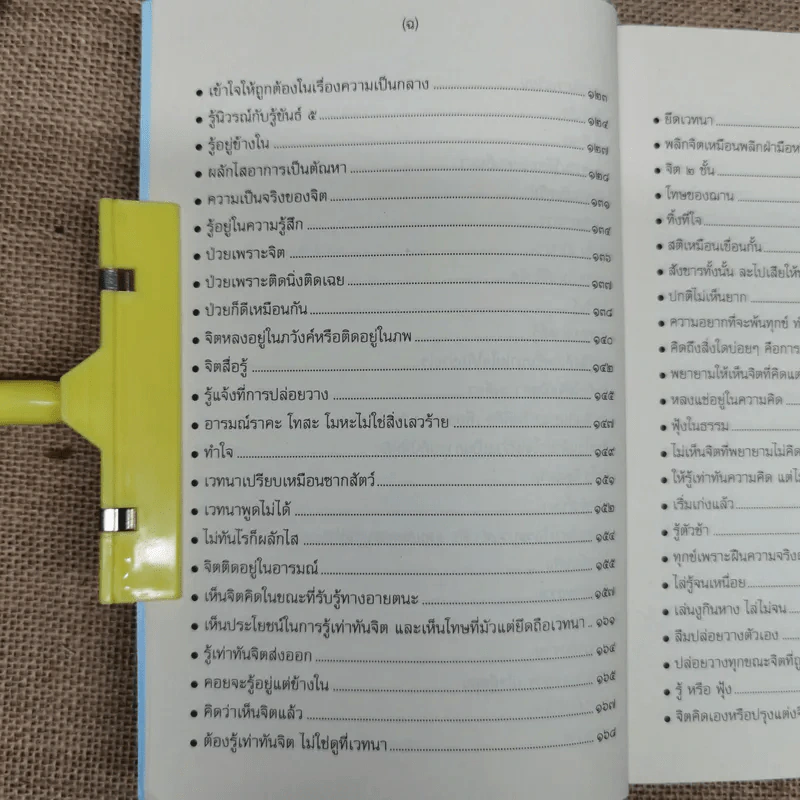 (ฉ)
• เข้าใจให้ถูกต้องในเรื่องความเป็นกลาง ๑๒๓
• รู้นิวรณ์กับรู้ขันธ์ ๕ ๑๒๔
• รู้อยู่ข้างใน ๑๒๗
• ผลักไสอาการเป็นตัณหา ๑๒๘
• ความเป็นจริงของจิต ๑๓๑
• รู้อยู่ในความรู้สึก ๑๓๔
• ป่วยเพราะจิต ๑๓๖
• ป่วยเพราะติดนิ่งติดเฉย ๑๓๗
• ป่วยก็ดีเหมือนกัน ๑๓๘
• จิตหลงอยู่ในภวังค์หรือติดอยู่ในภพ ๑๔๐
• จิตสื่อรู้ ๑๔๒
• รู้แจ้งที่การปล่อยวาง ๑๔๕
• อารมณ์ราคะ โทสะ โมหะไม่ใช่สิ่งเลวร้าย ๑๔๗
• ทำใจ ๑๔๙
• เวทนาเปรียบเหมือนซากสัตว์ ๑๕๑
• เวทนาพูดไม่ได้ ๑๕๒
• ไม่ทันโรก็ผลักไส ๑๕๔
• จิตติดอยู่ในอารมณ์ ๑๕๕
• เห็นจิตคิดในขณะที่รับรู้ทางอายตนะ ๑๕๗
• เห็นประโยชน์ในการรู้เท่าทันจิต และเห็นโทษที่มัวแต่ยึดถือเวทนา ๑๖๑
• รู้เท่าทันจิตส่งออก ๑๖๔
• คอยจะรู้อยู่แต่ข้างใน ๑๖๕
• คิดว่าเห็นจิตแล้ว ๑๖๗
• ต้องรู้เท่าทันจิต ไม่ใช่ดูที่เวทนา ๑๖๘
• ยึดเวทนา
• พลิกจิตเหมือนพลิกฝ่ามือห
• จิต ๒ ชั้น
• โทษของฌาน
• ทิ้งที่ใจ
• สติเหมือนเขื่อนกั้น
• สังขารทั้งนั้น ละไปเสียให้
• ปกติไม่เห็นยาก
• ความอยากที่จะพ้นทุกข์
• คิดถึงสิ่งใดบ่อยๆ คือการ
• พยายามให้เห็นจิตที่คิดแต่
• หลงแช่อยู่ในความคิด
• ฟุ้งในธรรม
• ไม่เห็นจิตที่พยายามไม่คิด
• ให้รู้เท่าทันความคิด แต่
• เริ่มเก่งแล้ว
• รู้ตัวช้า
• ทุกข์เพราะฝืนความจริง
• ไล่รู้จนเหนื่อย
• เล่นงูกินหาง ไล่ไม่จน
• ลืมปล่อยวางตัวเอง
• ปล่อยวางทุกขณะจิตที่
• รู้ หรือ ฟุ้ง
• จิตคิดเองหรือปรุงแต่ง